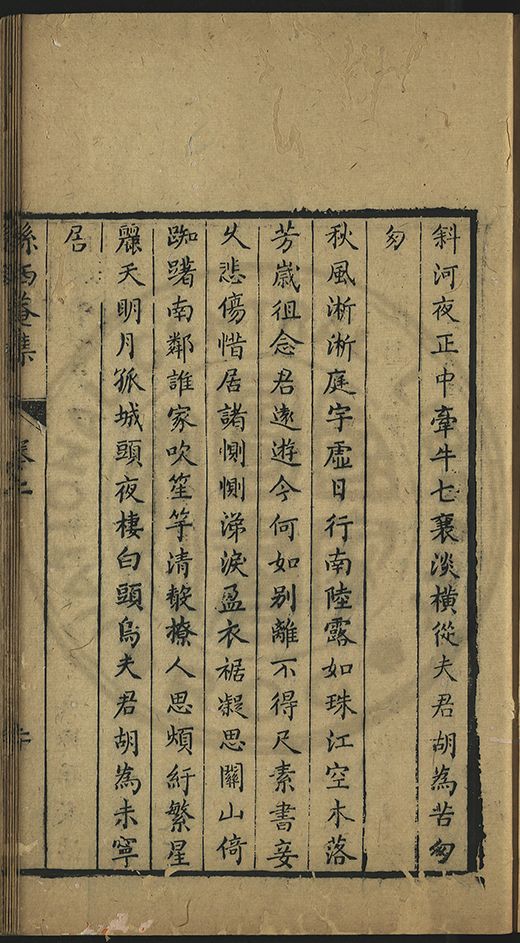 斜河夜正中牽牛七襄淡橫從夫君胡為苦匆
匆
秋風淅淅庭宇虛日行南陸露如珠江空木落
芳歲徂念君遠遊今何如別離不得尺素書妾
久悲傷惜居諸惻惻涕淚盈衣裾凝思關山倚
踟躇南鄰誰家吹笙竽清歌撩人思煩紆繁星
麗天明月孤城頭夜棲白頭烏夫君胡為未寧
居
孫西菴集